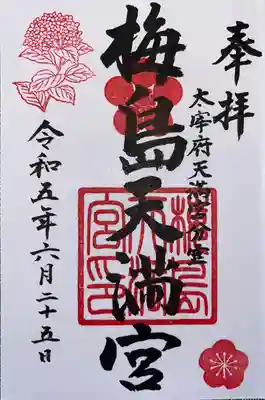 奉拝
太宰府天満宮分霊
梅島天満宮
令和五年六月二十五日